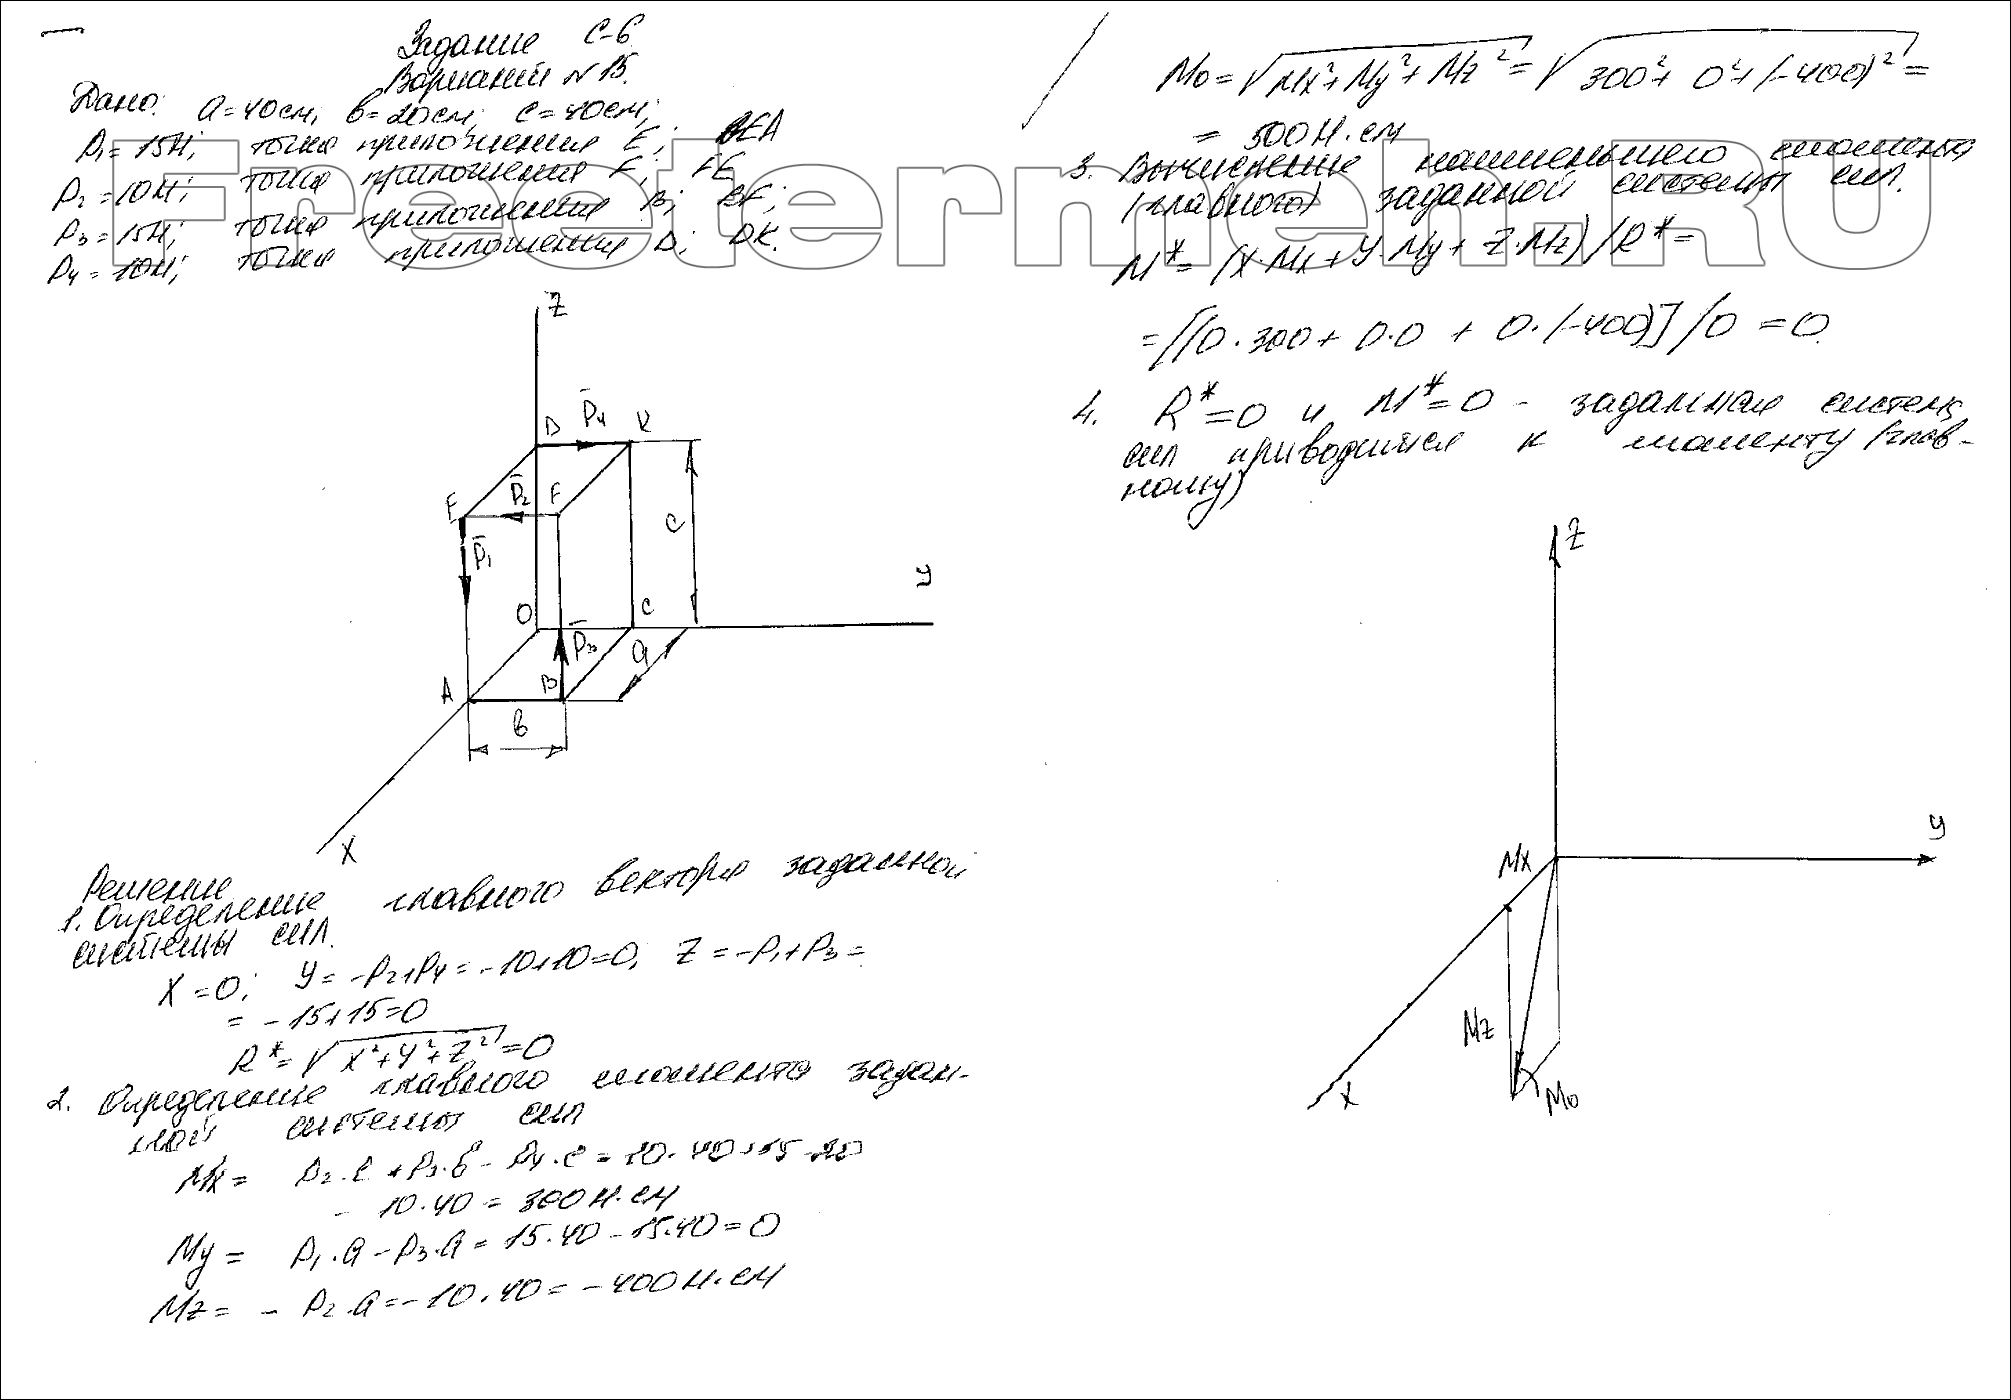 Задание С-6
Вариант N 15.
Дано: a=40см, в=20см, c=40см;
P₁=15Н; точка приложения E; EA
P₂=10Н; точка приложения F; FE
P₃=15Н; точка приложения B; BF;
P₄=10Н; точка приложения D; DK.
Freetermeh.RU
Z
D P₄ K
E P₂ F
P₁ c
y
O C
P₃ a
A B
в
X
Решение
1. Определение главного вектора заданной
системы сил.
X=0; Y=-P₂+P₄=-10+10=0, Z=-P₁+P₃=
=-15+15=0
R*=√X²+Y²+Z²=0
2. Определение главного момента задан-
ной системы сил
Mx= P₂·c+P₃·в-P₄·c=10·40+15·20
- 10·40=300Н·см
My= P₁·a-P₃·a=15·40-15·40=0
Mz= - P₂·a=-10·40=-400Н·см
M₀=√Mx²+My²+Mz²=√300²+0²+(-400)²=
= 500Н·см
3. Вычисление наименьшего момента
(главного) заданной системы сил.
M*=(X·Mx+Y·My+Z·Mz)/R*=
=[(0·300+0·0+0·(-400)]/0=0
4. R*=0 и M*=0 - заданная система
сил приводится к моменту (глав-
ному)
Z
y
Mx
Mz
X M₀